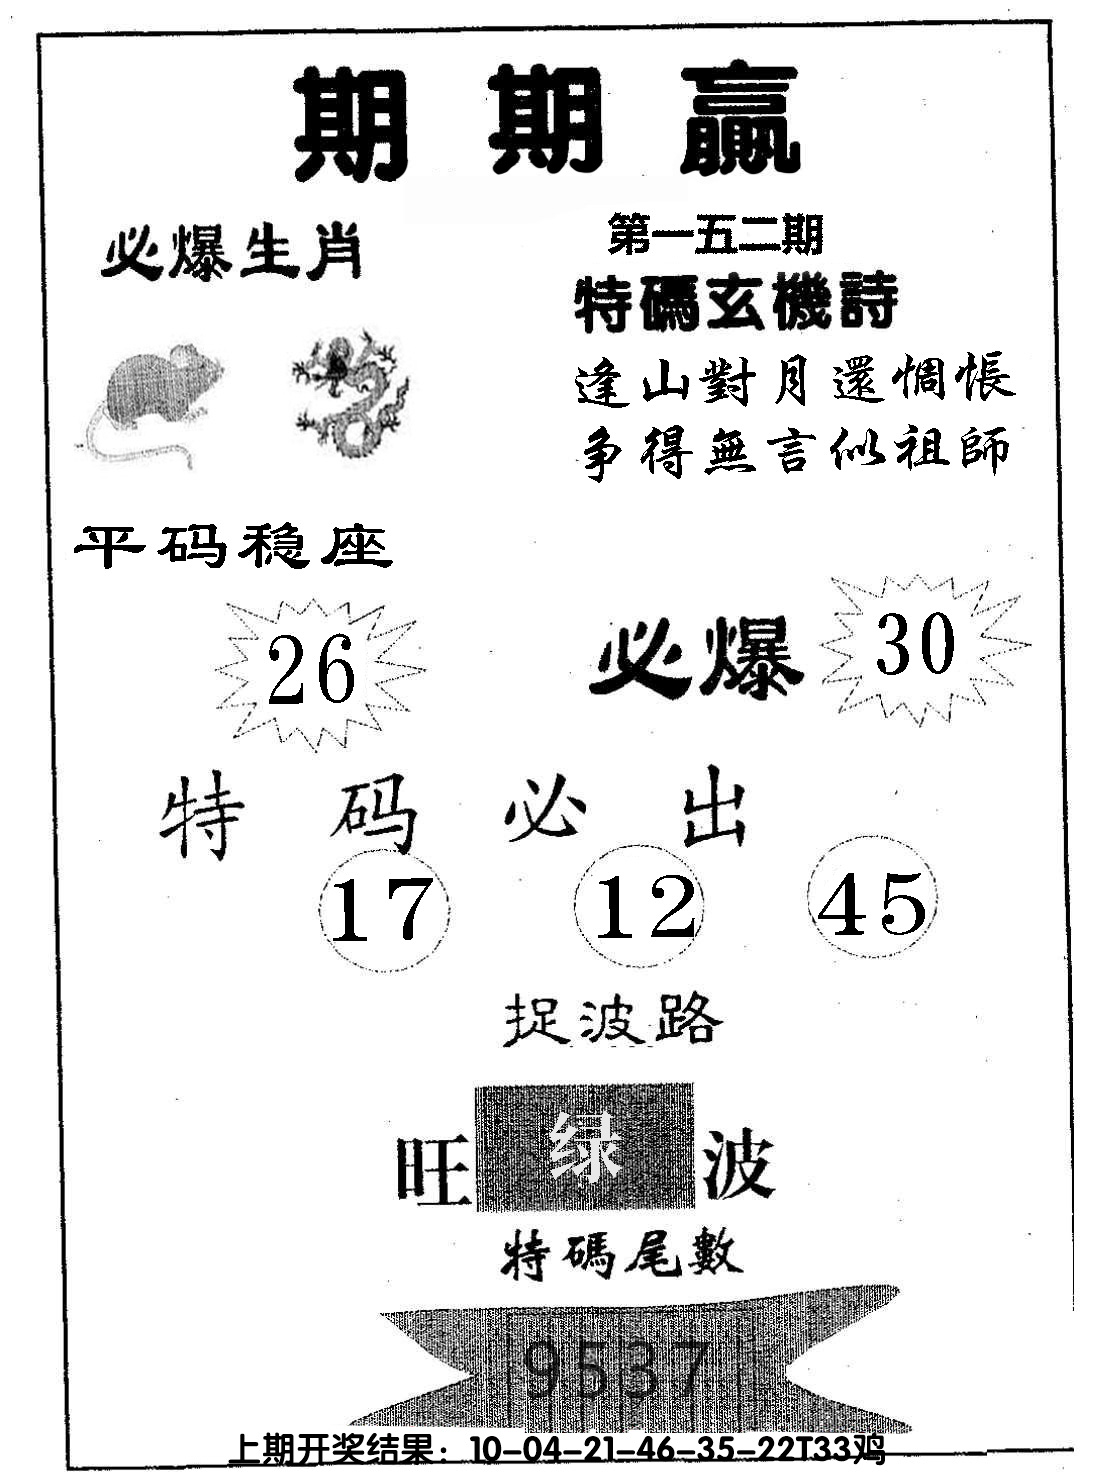 期期贏
必爆生肖
第一五二期
特碼玄機詩
逢山對月還惆悵
争得無言似祖師
平码稳座
26
必爆 30
特码必出
17 12 45
捉波路
旺 绿 波
特碼尾數
9537
上期开奖结果：10-04-21-46-35-22T33鸡